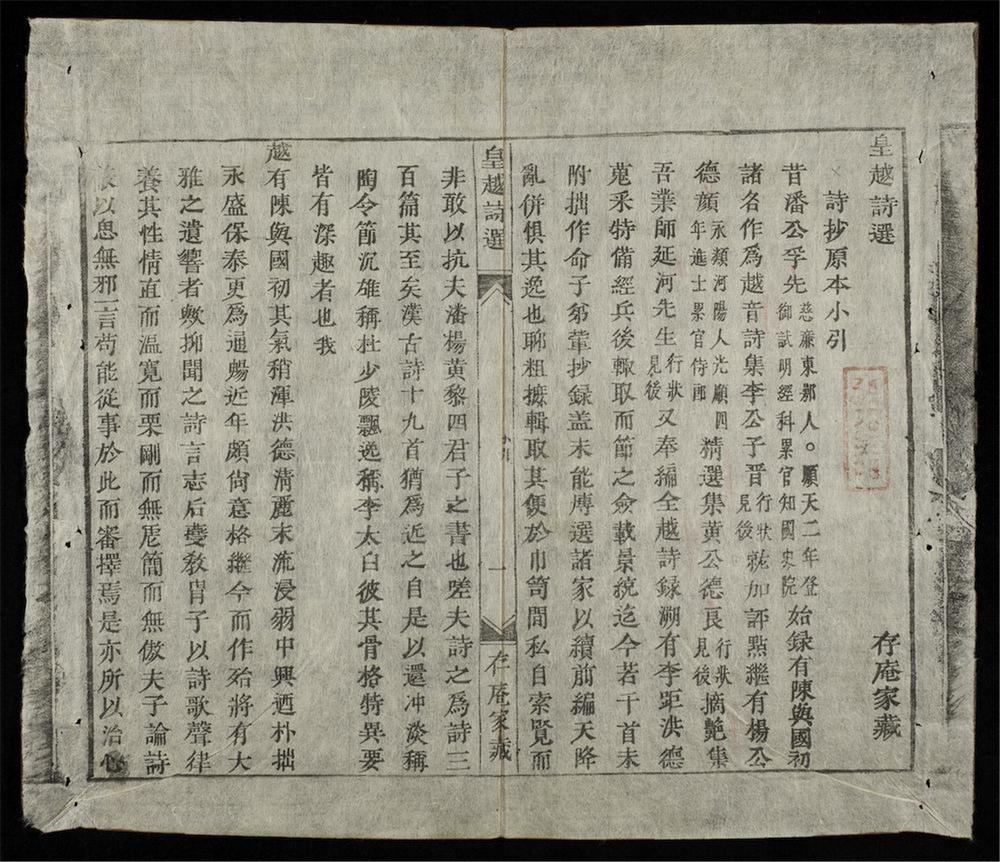 皇越詩選 存庵家藏
詩抄原本小引
昔潘公孚先慈廉東鄂人。順天二年登御試明經科累官知國史院始録有陳與國初
諸名作爲越音詩集李公子晋行狀見後就加評點繼有楊公
德顔永頼河陽人光順四年進士累官侍郎精選集黄公德良行狀見後摘艶集
吾業師延河先生行狀見後又奉編全越詩録溯有李距洪德
蒐釆特備經兵後輙取而節之僉載景統迄今若干首未
附拙作命子弟軰抄録盖未能塼選諸家以續前編天降
亂併俱其逸也聊粗摭輯取其便於巾笥間私自索覽而
皇越詩選 小引 一 存庵家藏
非敢以抗夫潘楊黄黎四君子之書也嗟夫詩之爲詩三
百篇其至矣漢古詩十九首猶爲近之自是以還冲淡稱
陶令節沉雄稱杜少陵飄逸稱李太白彼其骨格特異要
皆有深趣者也我
越有陳與國初其氣稍渾洪德清麗末流浸弱中興迺朴拙
永盛保泰更爲通暢近年頗尙意格繼今而作殆將有大
雅之遺響者歟抑聞之詩言志后夔敎胄子以詩歌聲律
養其性情直而温寛而栗剛而無虐簡而無傲夫子論詩
以思無邪一言苟能從事於此而審擇焉是亦所以治心